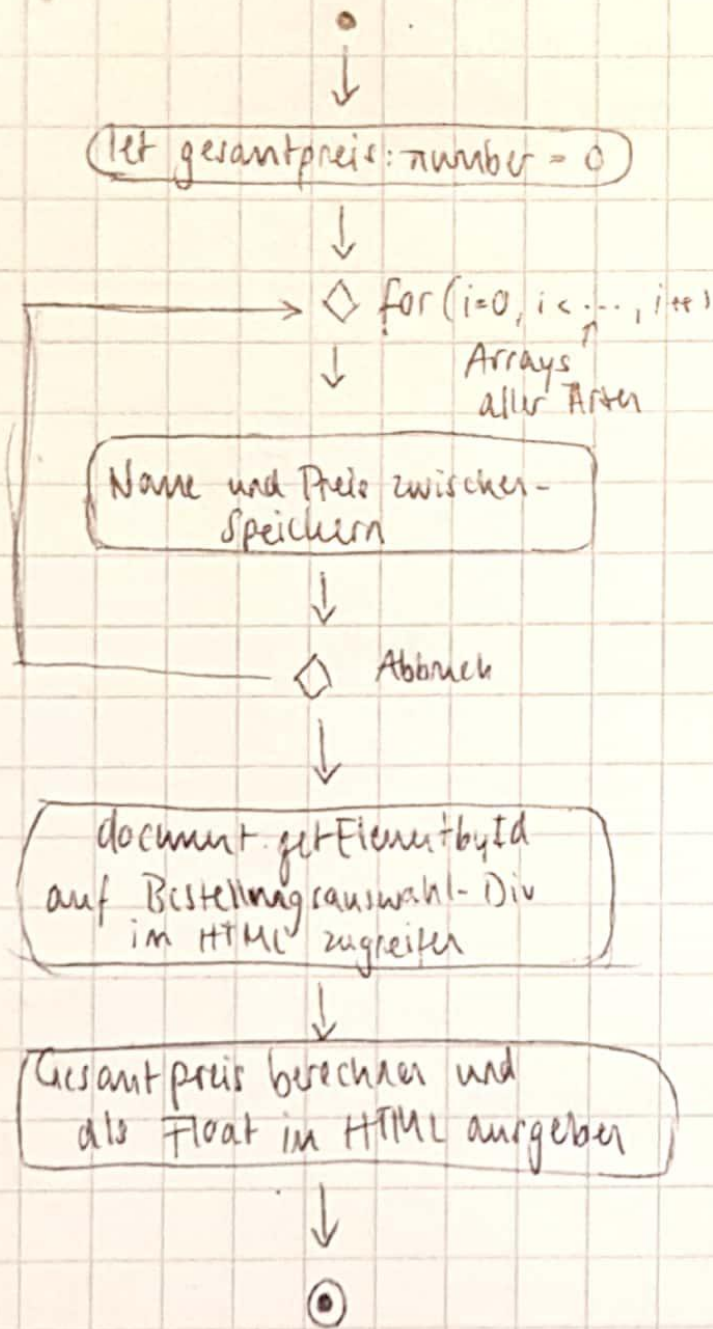 let gesamtpreis: number = 0
for (i=0, i < ...., i++)
Arrays
aller Arten
Name und Preis zwischen-
speichern
Abbruch
document.getElementbyId
auf Bestellungsauswahl-Div
im HTML zugreifen
Gesamtpreis berechnen und
als Float in HTML ausgeben